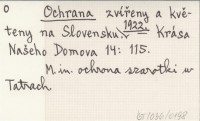 O
Ochrana zvířeny a kvě-
teny na Slovensku. 1922. = Krása
Našeho Domova 14: 115.
M.in. ochrona szarotki w
Tatrach